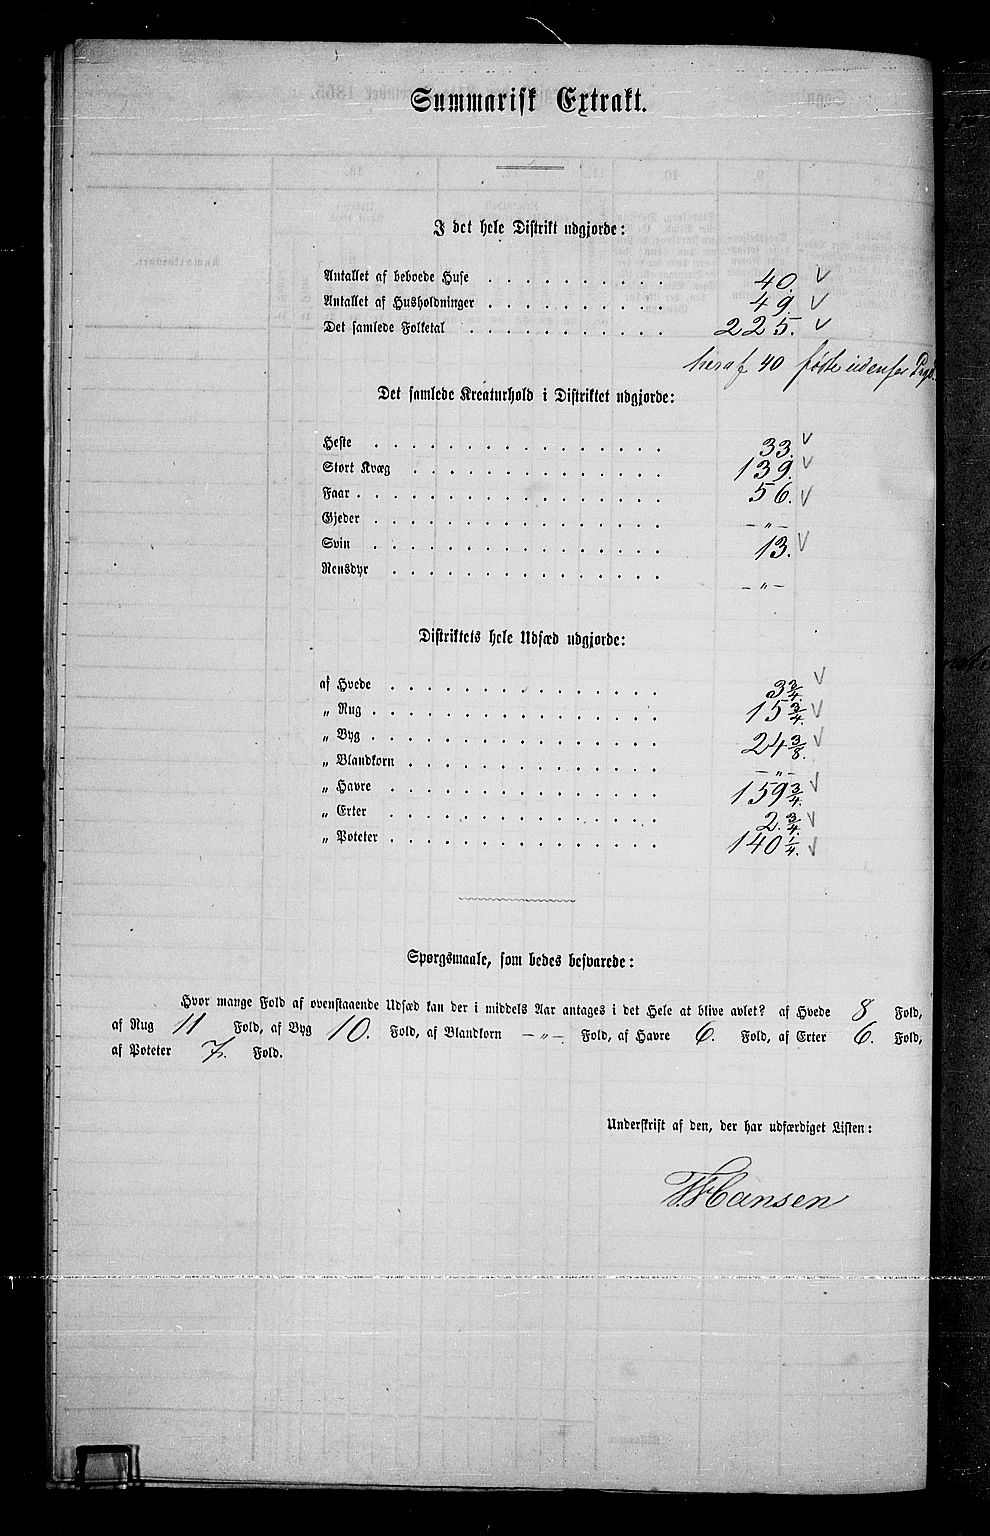 Summarisk Extrakt.
I det hele Distrikt udgjorde:
Antallet af beboede Huse . . . . . . . . . . 40. ✓
Antallet af Husholdninger . . . . . . . . . . 49. ✓
Det samlede Folketal . . . . . . . . . . . 225. ✓
heraf 40 fødte udenfor Prgj.
Det samlede Kreaturhold i Distriktet udgjorde:
Heste . . . . . . . . . . . . . . . . 33. ✓
Stort Kvæg . . . . . . . . . . . . . . 139. ✓
Faar . . . . . . . . . . . . . . . . . 56. ✓
Gjeder . . . . . . . . . . . . . . . . – „ –
Svin . . . . . . . . . . . . . . . . 13. ✓
Rensdyr . . . . . . . . . . . . . . . – „ –
Distriktets hele Udsæd udgjorde:
af Hvede . . . . . . . . . . . . . . . 3 3/4. ✓
„ Rug . . . . . . . . . . . . . . . . 15 3/4. ✓
„ Byg . . . . . . . . . . . . . . . . 24 3/8. ✓
„ Blandkorn . . . . . . . . . . . . . . – „ –
„ Havre . . . . . . . . . . . . . . . 159 3/4. ✓
„ Erter . . . . . . . . . . . . . . . 2. 3/4. ✓
„ Poteter . . . . . . . . . . . . . . . 140 1/4. ✓
Spørgsmaale, som bedes besvarede:
Hvor mange Fold af ovenstaaende Udsæd kan der i middels Aar antages i det Hele at blive avlet? af Hvede 8 Fold,
af Rug 11 Fold, af Byg 10. Fold, af Blandkorn – „ –. Fold, af Havre 6. Fold, af Erter 6. Fold,
af Poteter 7. Fold.
Underskrift af den, der har udfærdiget Listen:
Hansen